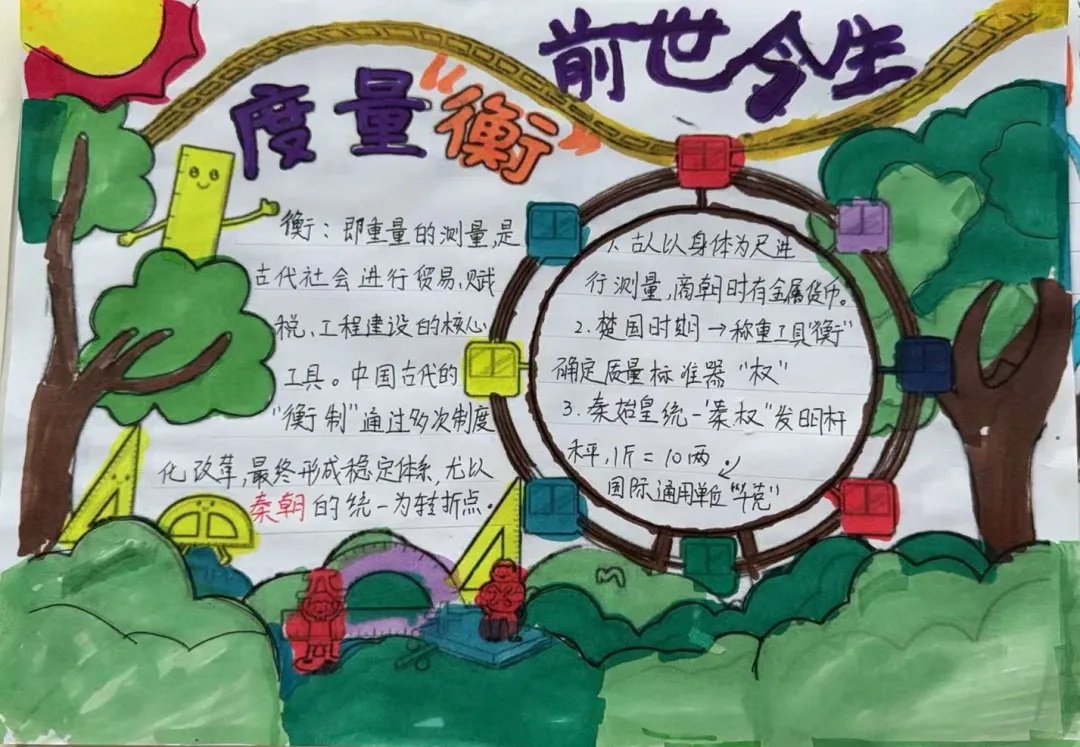 前世今生
度量“衡”
衡：即重量的测量,是
古代社会进行贸易、赋
税、工程建设的核心
工具。中国古代的
"衡制"通过多次制度
化改革,最终形成稳定体系,尤以
秦朝的统一为转折点。
1、古人以身体为尺进
行测量,商朝时有金属货币。
2.楚国时期→称重工具"衡"
确定质量标准器"权"
3.秦始皇统一"秦权"发明杆
秤,1斤=10两
国际通用单位"千克"